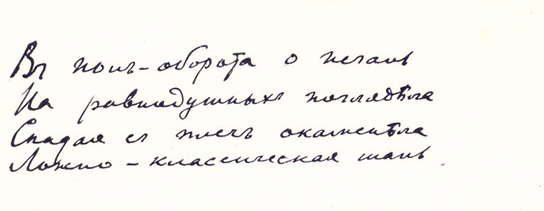 Въ полъ-оборота о печаль
На равнодушныхъ поглядѣла
Спадая съ плечъ окаменѣла
Ложно-классическая шаль.